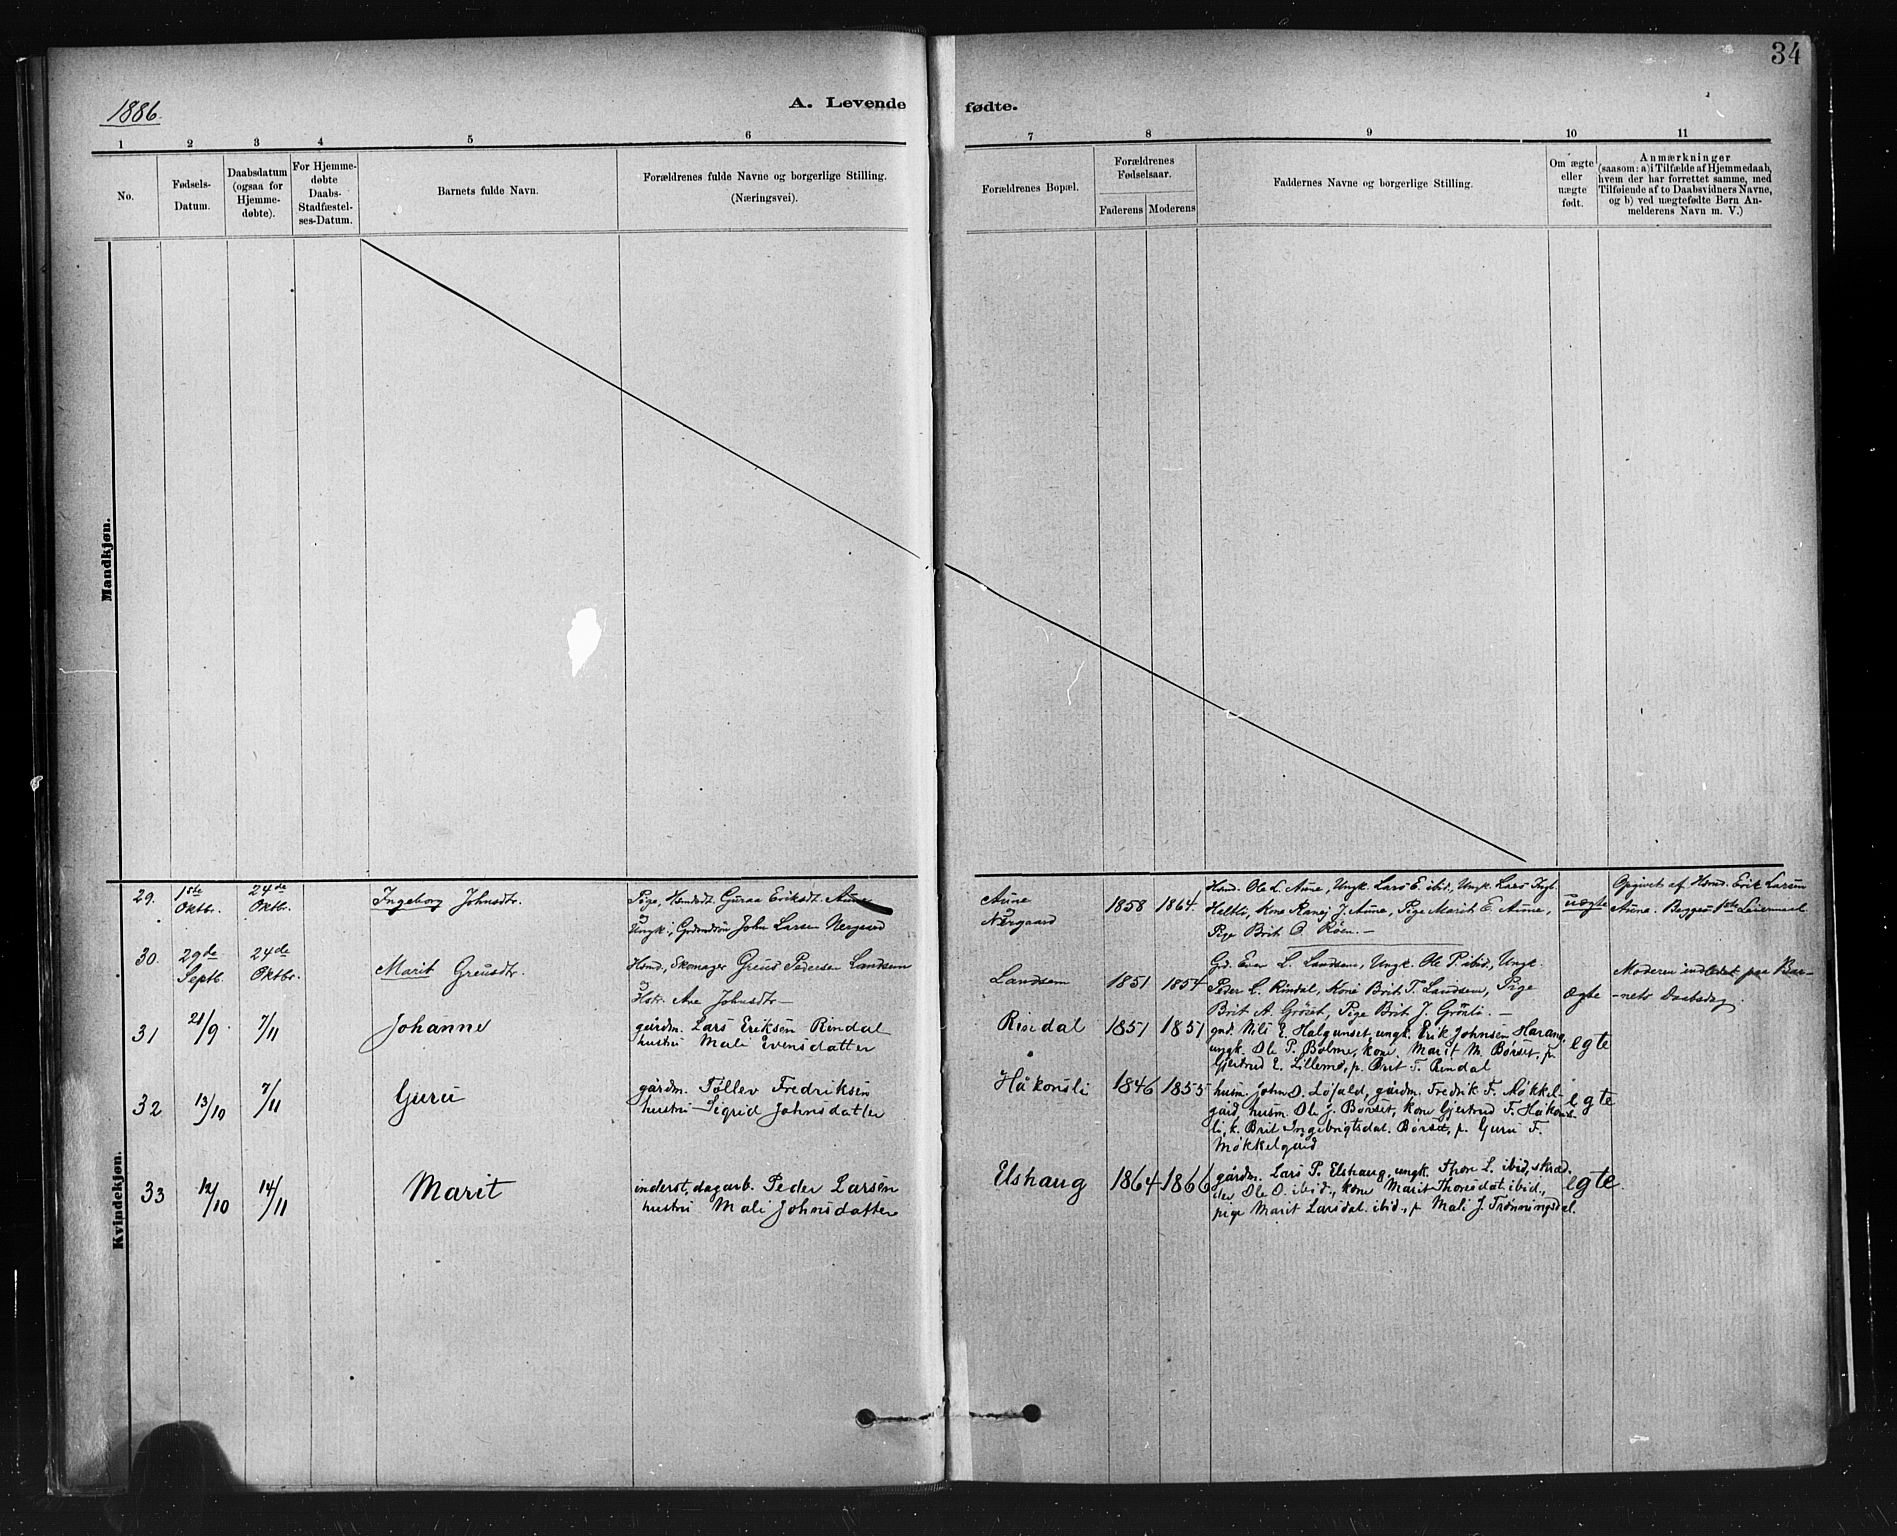 34
1886.
A. Levende fødte.
1 2 3 4 5 6 7 8 9 10 11
No.
Fødsels-
Datum.
Daabsdatum
(ogsaa for
Hjemme-
døbte).
For Hjemme-
døbte
Daabs-
Stadfæstel-
ses-Datum.
Barnets fulde Navn.
Forældrenes fulde Navne og borgerlige Stilling.
(Næringsvei).
Forældrenes Bopæl.
Forældrenes
Fødselsaar.
Faderens Moderens
Faddernes Navne og borgerlige Stilling.
Om ægte
eller
uægte
født.
Anmærkninger
(saasom: a) i Tilfælde af Hjemmedaab,
hvem der har forrettet samme, med
Tilføiende af to Daabsvidners Navne,
og b) ved uægtefødte Børn An-
melderens Navn m. V.)
Mandkjøn.
Kvindekjøn.
29.
1ste
Oktbr.
24de
Oktbr.
Ingeborg Johnsdtr.
Pige, Guraa Eriksdt. Aune
Ungk., John Larsen Nergaard
Aune
Nergaard
1858 1864.
Hsmd. Ole L. Aune, Ungk. Lars E. ibid, Ungk. Lars
Kone Ranej J. Aune, Pige Marit E. Aune,
Pige Brit O. Røen. —
uægte
Opgivet af Hsmd. Erik Larsen
Aune. Begges 1ste Leiermaal
30.
29de
Septb.
24de
Oktbr.
Marit Greusdtr.
Hsmd, Skomager Greus Pedersen Landsem
Hstr. Ane Johnsdtr —
Landsem
1851 1854
Grd. Even L. Landsem, Ungk. Ole P. ibid, Ungk.
Peder L. Rindal, Kone Brit T. Landsem, Pige
Brit A. Grøset, Pige Brit J. Grønli. —
Ægte
Moderen indledet paa Bar-
nets Daabsdag.
31
21/9.
7/11
Johanne
gårdm. Lars Eriksen Rindal
hustru Mali Evensdatter
Rindal
1851 1851
grd. Nils E. Halgunset, ungk. Erik Johnsen Harang,
ungk. Ole P. Bolme, kone Marit M. Børset, p.
Gjertrud E. Lillemo, p. Brit T. Rindal
egte
32
13/10
7/11
Guru
gårdm. Tollev Fredriksen
hustru Sigrid Johnsdatter
Håkonsli
1846 1855
husm. John O. Lofald, gårdm. Fredrik F. Møkkel-
gård, husm. Ole J. Børset, kone Gjertrud F. Håkons-
li, k. Brit Ingebrigtsdat. Børset, p. Guru F.
Møkkelgård
egte
33
12/10
14/11
Marit
inderst, dagarb. Peder Larsen
hustru Mali Johnsdatter
Elshaug
1864 1866
gårdm. Lars P. Elshaug, ungk. Thore L. ibid, skræd-
der Ole O. ibid., kone Marit Thoresdat. ibid.,
pige Marit Larsdat. ibid., p. Mali J. Trønningsdal.
egte.